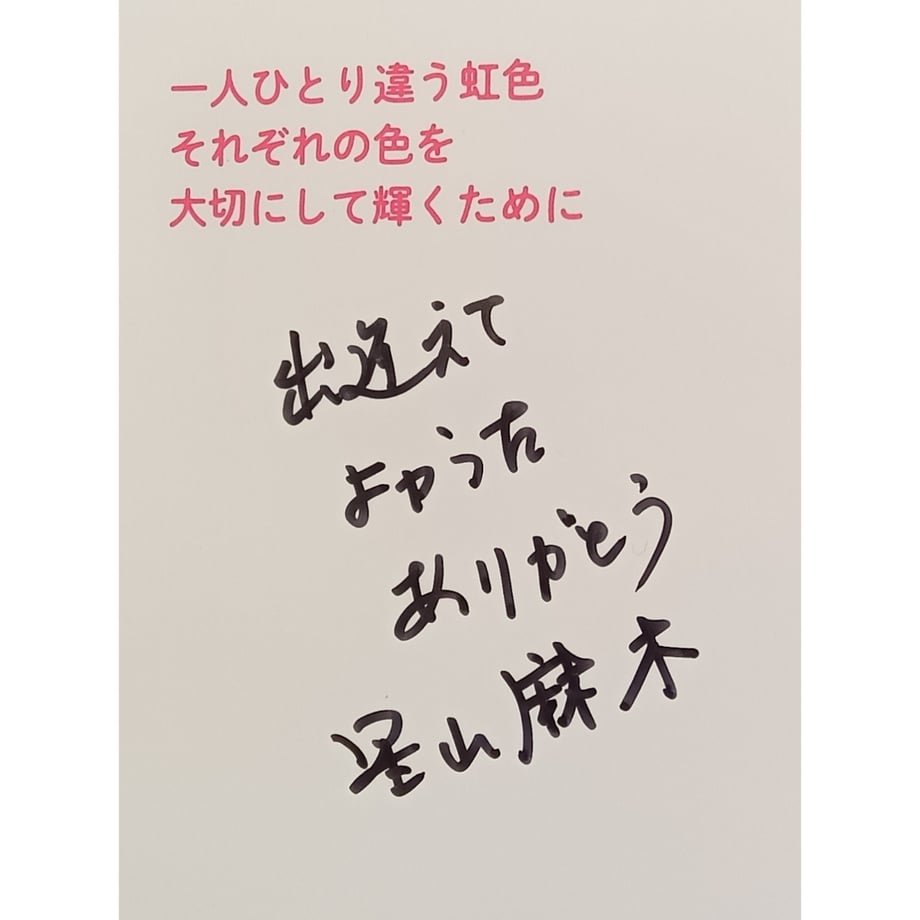 一人ひとり違う虹色
それぞれの色を
大切にして輝くために
出逢えて
よかった
ありがとう
星山麻木